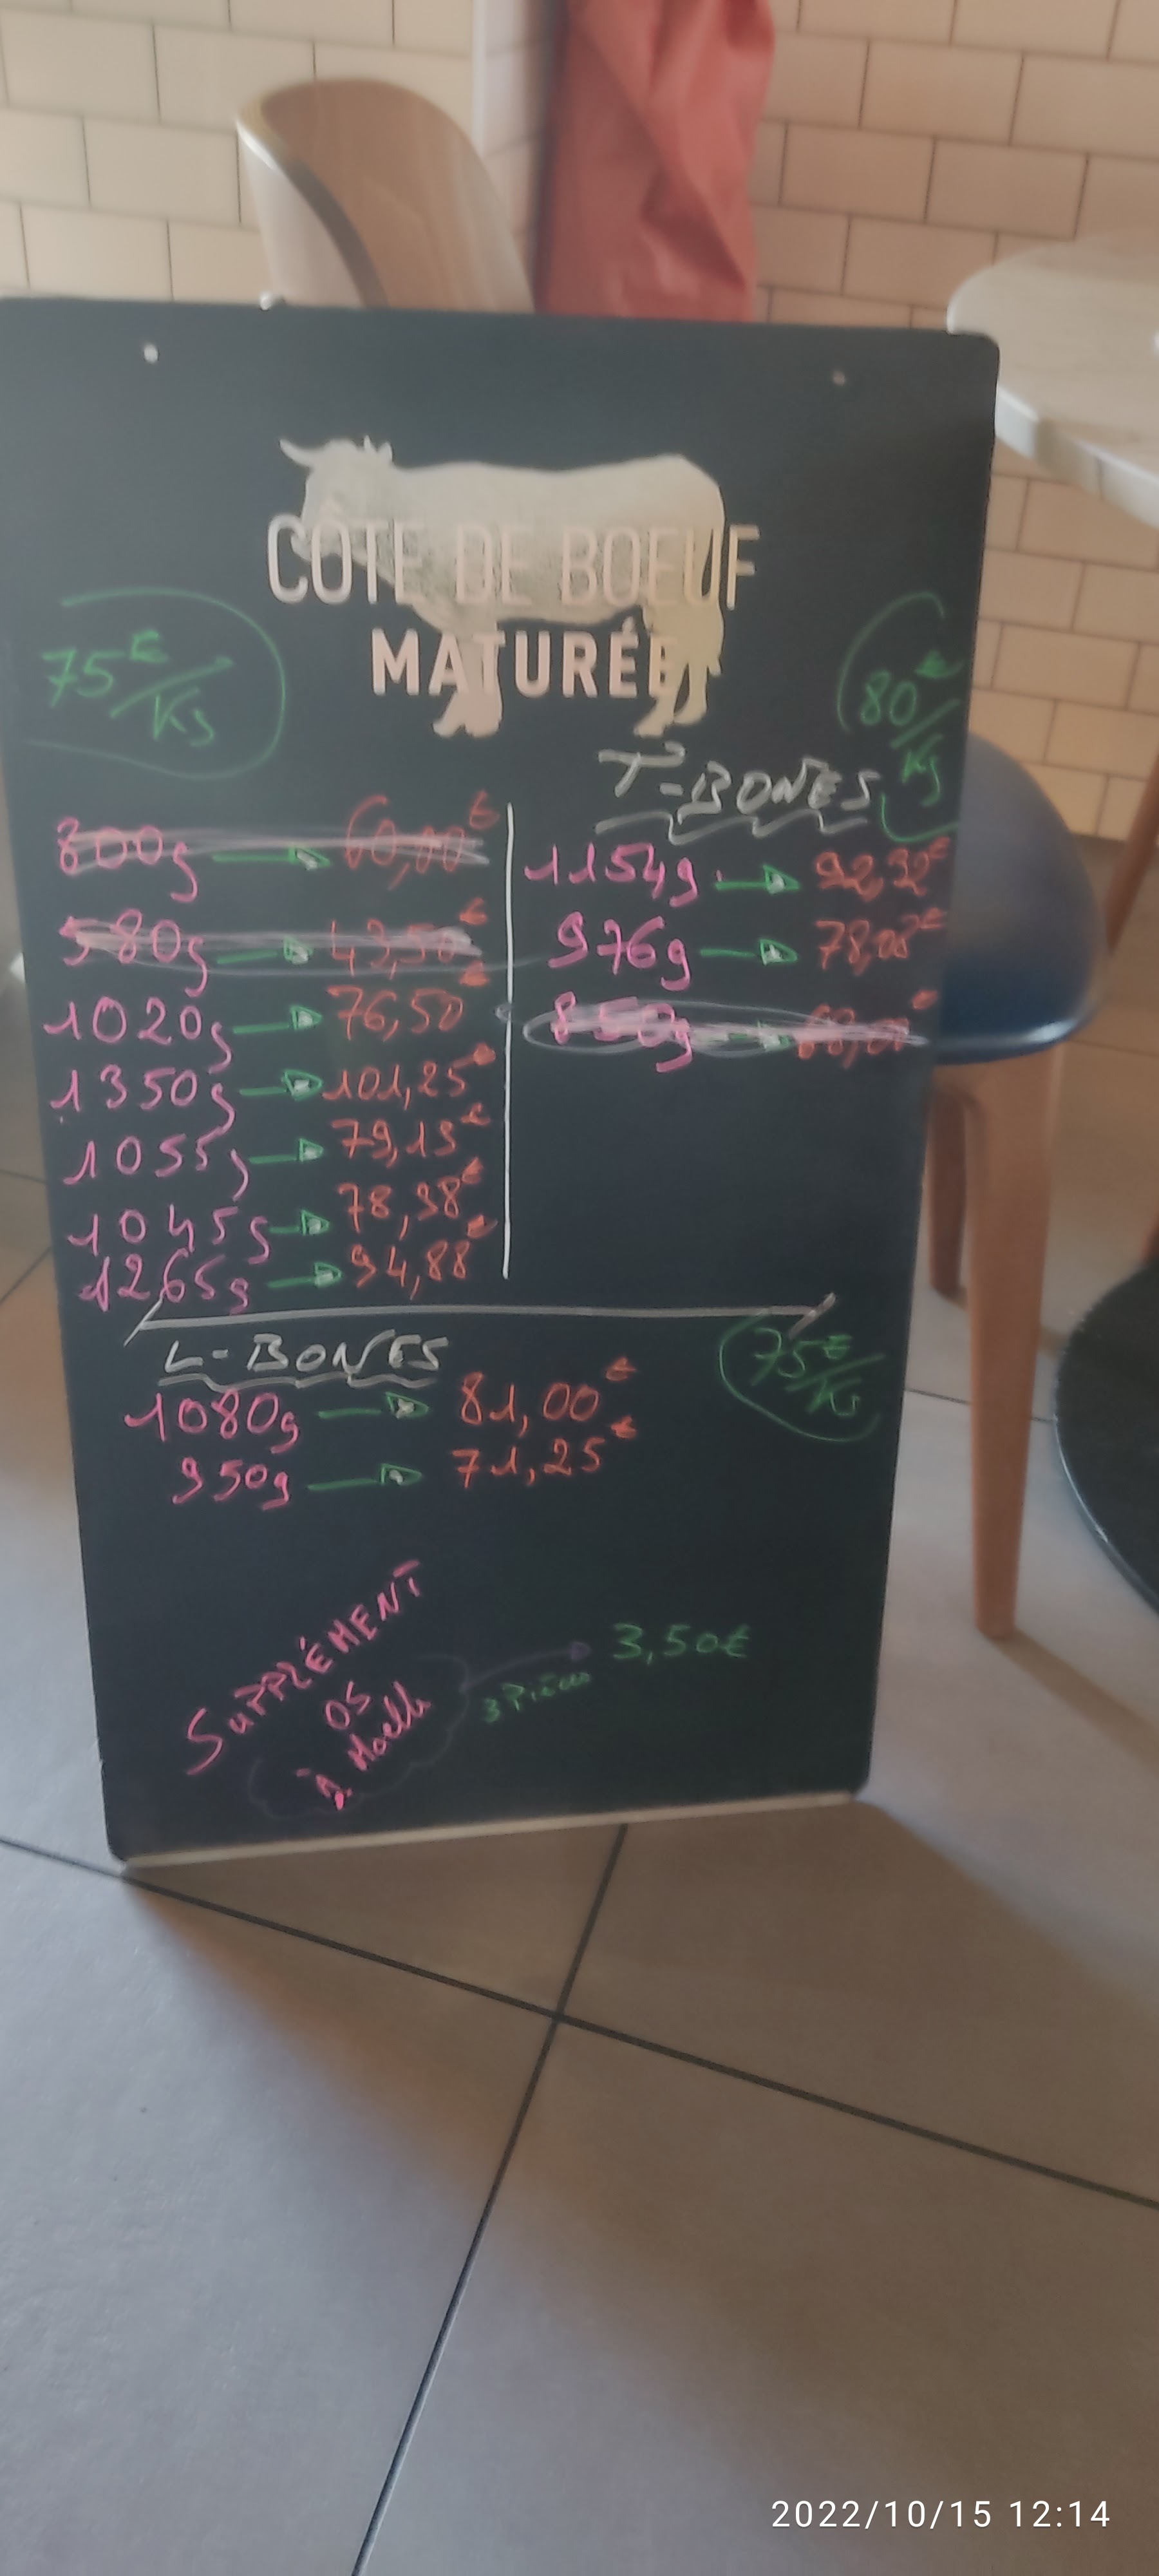 CÔTE DE BOEUF
MATURÉE
75€/Kg
800g → 60,00€
580g → 43,50€
1020g → 76,50€
1350g → 101,25€
1055g → 79,13€
1045g → 78,38€
1265g → 94,88€
80€/Kg
T-BONES
1154g → 92,32€
976g → 78,08€
850g → 68,00€
L-BONES
75€/Kg
1080g → 81,00€
950g → 71,25€
SUPPLÉMENT
OS
à Moelle
3 Pièces
3,50€
2022/10/15 12:14